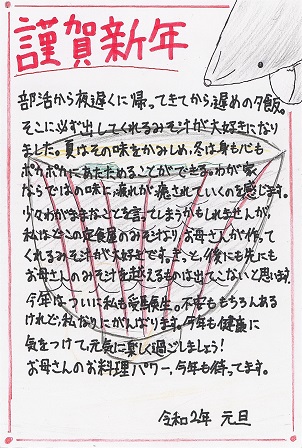 謹賀新年
部活から夜遅くに帰ってきてから遅めの夕飯。
そこに必ず出してくれるみそ汁が大好きになり
ました。夏はその味をかみしめ、冬は身も心も
ポカポカにあたためることができる。わが家
ならではの味に疲れが癒されていくのを感じます。
少々わがままなことを言ってしまうかもしれませんが、
私はどこの定食屋のみそ汁より、お母さんが作って
くれるみそ汁が大好きです。きっと、後にも先にも
お母さんのみそ汁を越えるものは出てこないと思います。
今年はついに私も受験生。不安ももちろんある
けれど、私なりにがんばります。今年も健康に
気をつけて元気に楽しく過ごしましょう！
お母さんのお料理パワー、今年も待ってます。
令和2年 元旦